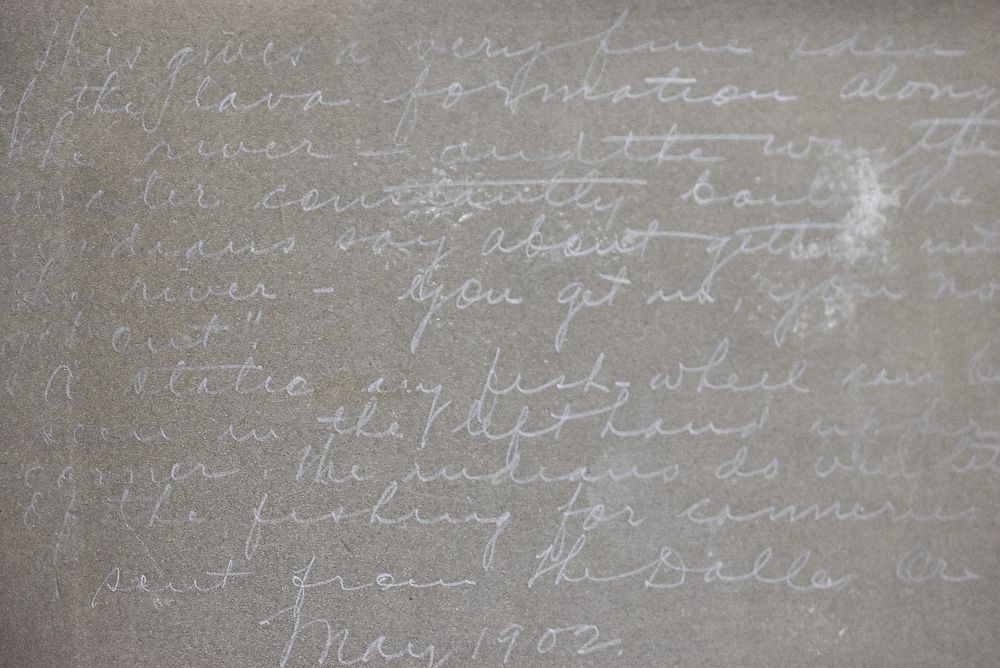 This gives a very fine idea
of the lava formation along
the river - and the way the
water constantly boils. The
indians say about getting into
the river - "You get in, you no
git out"
A stationary fish-wheel can be
seen in the left hand upper
corner. The indians do
of the fishing for canneries
sent from The Dalles Ore
May 1902.